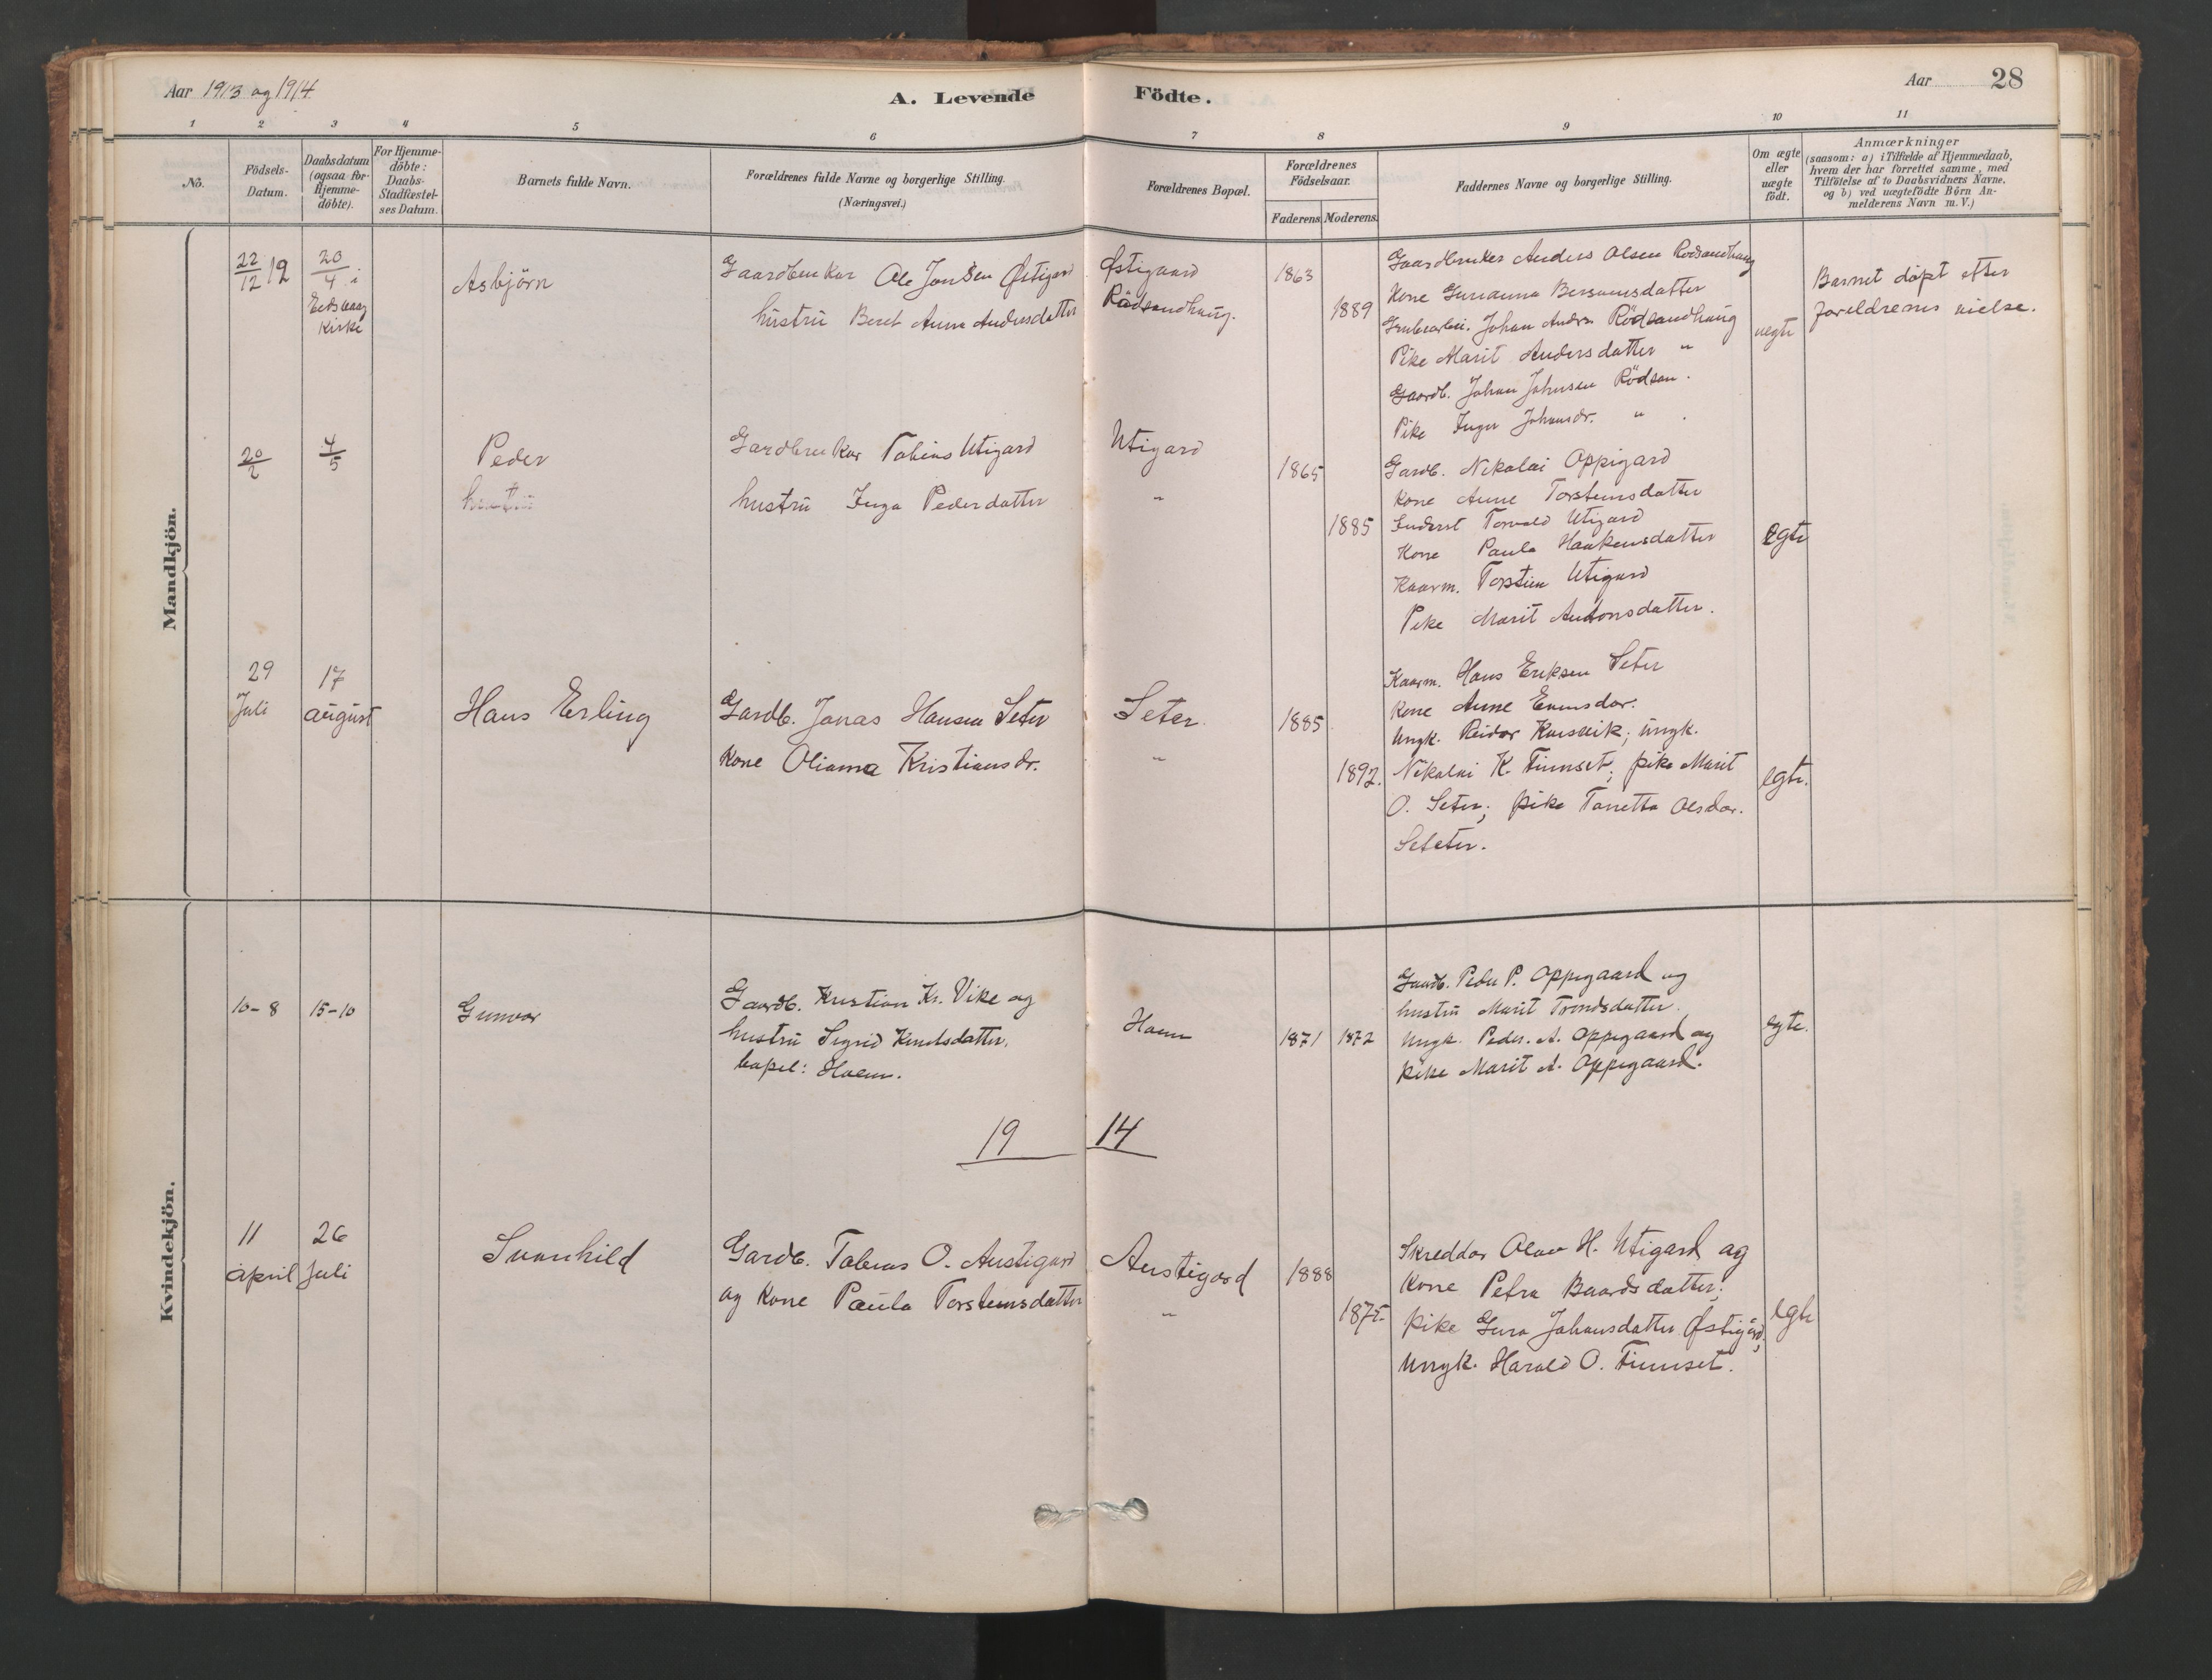 Aar 1913 og 1914
A. Levende Födte.
Aar 28
1 2 3 4 5 6 7 8 9 10 11
No.
Födsels-
Datum.
Daabsdatum
(ogsaa for
Hjemme-
döbte).
For Hjemme-
döbte:
Daabs-
Stadfæstel-
ses Datum.
Barnets fulde Navn.
Forældrenes fulde Navne og borgerlige Stilling.
(Næringsvei.)
Forældrenes Bopæl.
Forældrenes
Födselsaar.
Faderens. Moderens.
Faddernes Navne og borgerlige Stilling.
Om ægte
eller
uægte
födt.
Anmærkninger
(saasom: a) i Tilfælde af Hjemmedaab,
hvem der har forrettet samme, med
Tilföielse af to Daabsvidners Navne.
og b) ved uægtefödte Börn An-
melderens Navn m. V.)
Mandkjön.
22/12 12
20/4 i
Eidsvaag
Kirke
Asbjörn
Gaardbruker Ole Jonsen Østigard
hustru Beret Anna Andersdatter
Østigaard
Rödsandhaug.
1863
1889
Gaardbruker Anders Olsen Rödsandhaug
Kone Gurianna
Johan Anders. Rödsandhaug
Pike Marit Andersdatter "
Gaardb. Johan Johnsen Rödsan.
Pike Inger Johansdr. "
uegte
Barnet döpt efter
foreldrenes vielse.
20/2
4/5
Peder
hustru
Gardbruker Tobias Utigard
hustru Inga Pedersdatter
Utigard
"
1865
1885
Gardb. Nikolai Oppigard
Kone Anne Torsteinsdatter
Torvald Utigard
Kone Paula Haakensdatter
Kaarm. Torstein Utigard
Pike Marit Antonsdatter.
egte
29
Juli
17
august
Hans Erling
Gardb. Jonas Hansen Seter
Kone Olianna Kristiansdr.
Seter
"
1885
1892.
Kaarm. Hans Eriksen Seter
Kone Anne Evensdar.
Ungk. Reidar Korsvik; ungk.
Nikolai K. Finnset; pike Marit
O. Seter; pike Tonetta Olsdar.
Seteter.
egte.
Kvindekjön.
10-8
15-10
Gunvor
Gaardb. Kristian Kr. Vike og
hustru Sigrid Knutsdatter,
bopel: Hoem.
Hoem
1871
1872
Gaardb. Peder P. Oppegaard og
hustru Marit Trondsdatter.
Ungk. Peder. A. Oppegaard og
pike Marit A. Oppegaard.
egte.
19 14
11
april
26
Juli
Svanhild
Gardb. Tobias O. Austigard
og Kone Paula Torsteinsdatter
Austigard
"
1888
1875.
Skreddar Olav H. Utigard og
Kone Petra Baardsdatter;
pike Gura Johansdatter Østigård;
Ungk. Harald O. Finnset.
egte